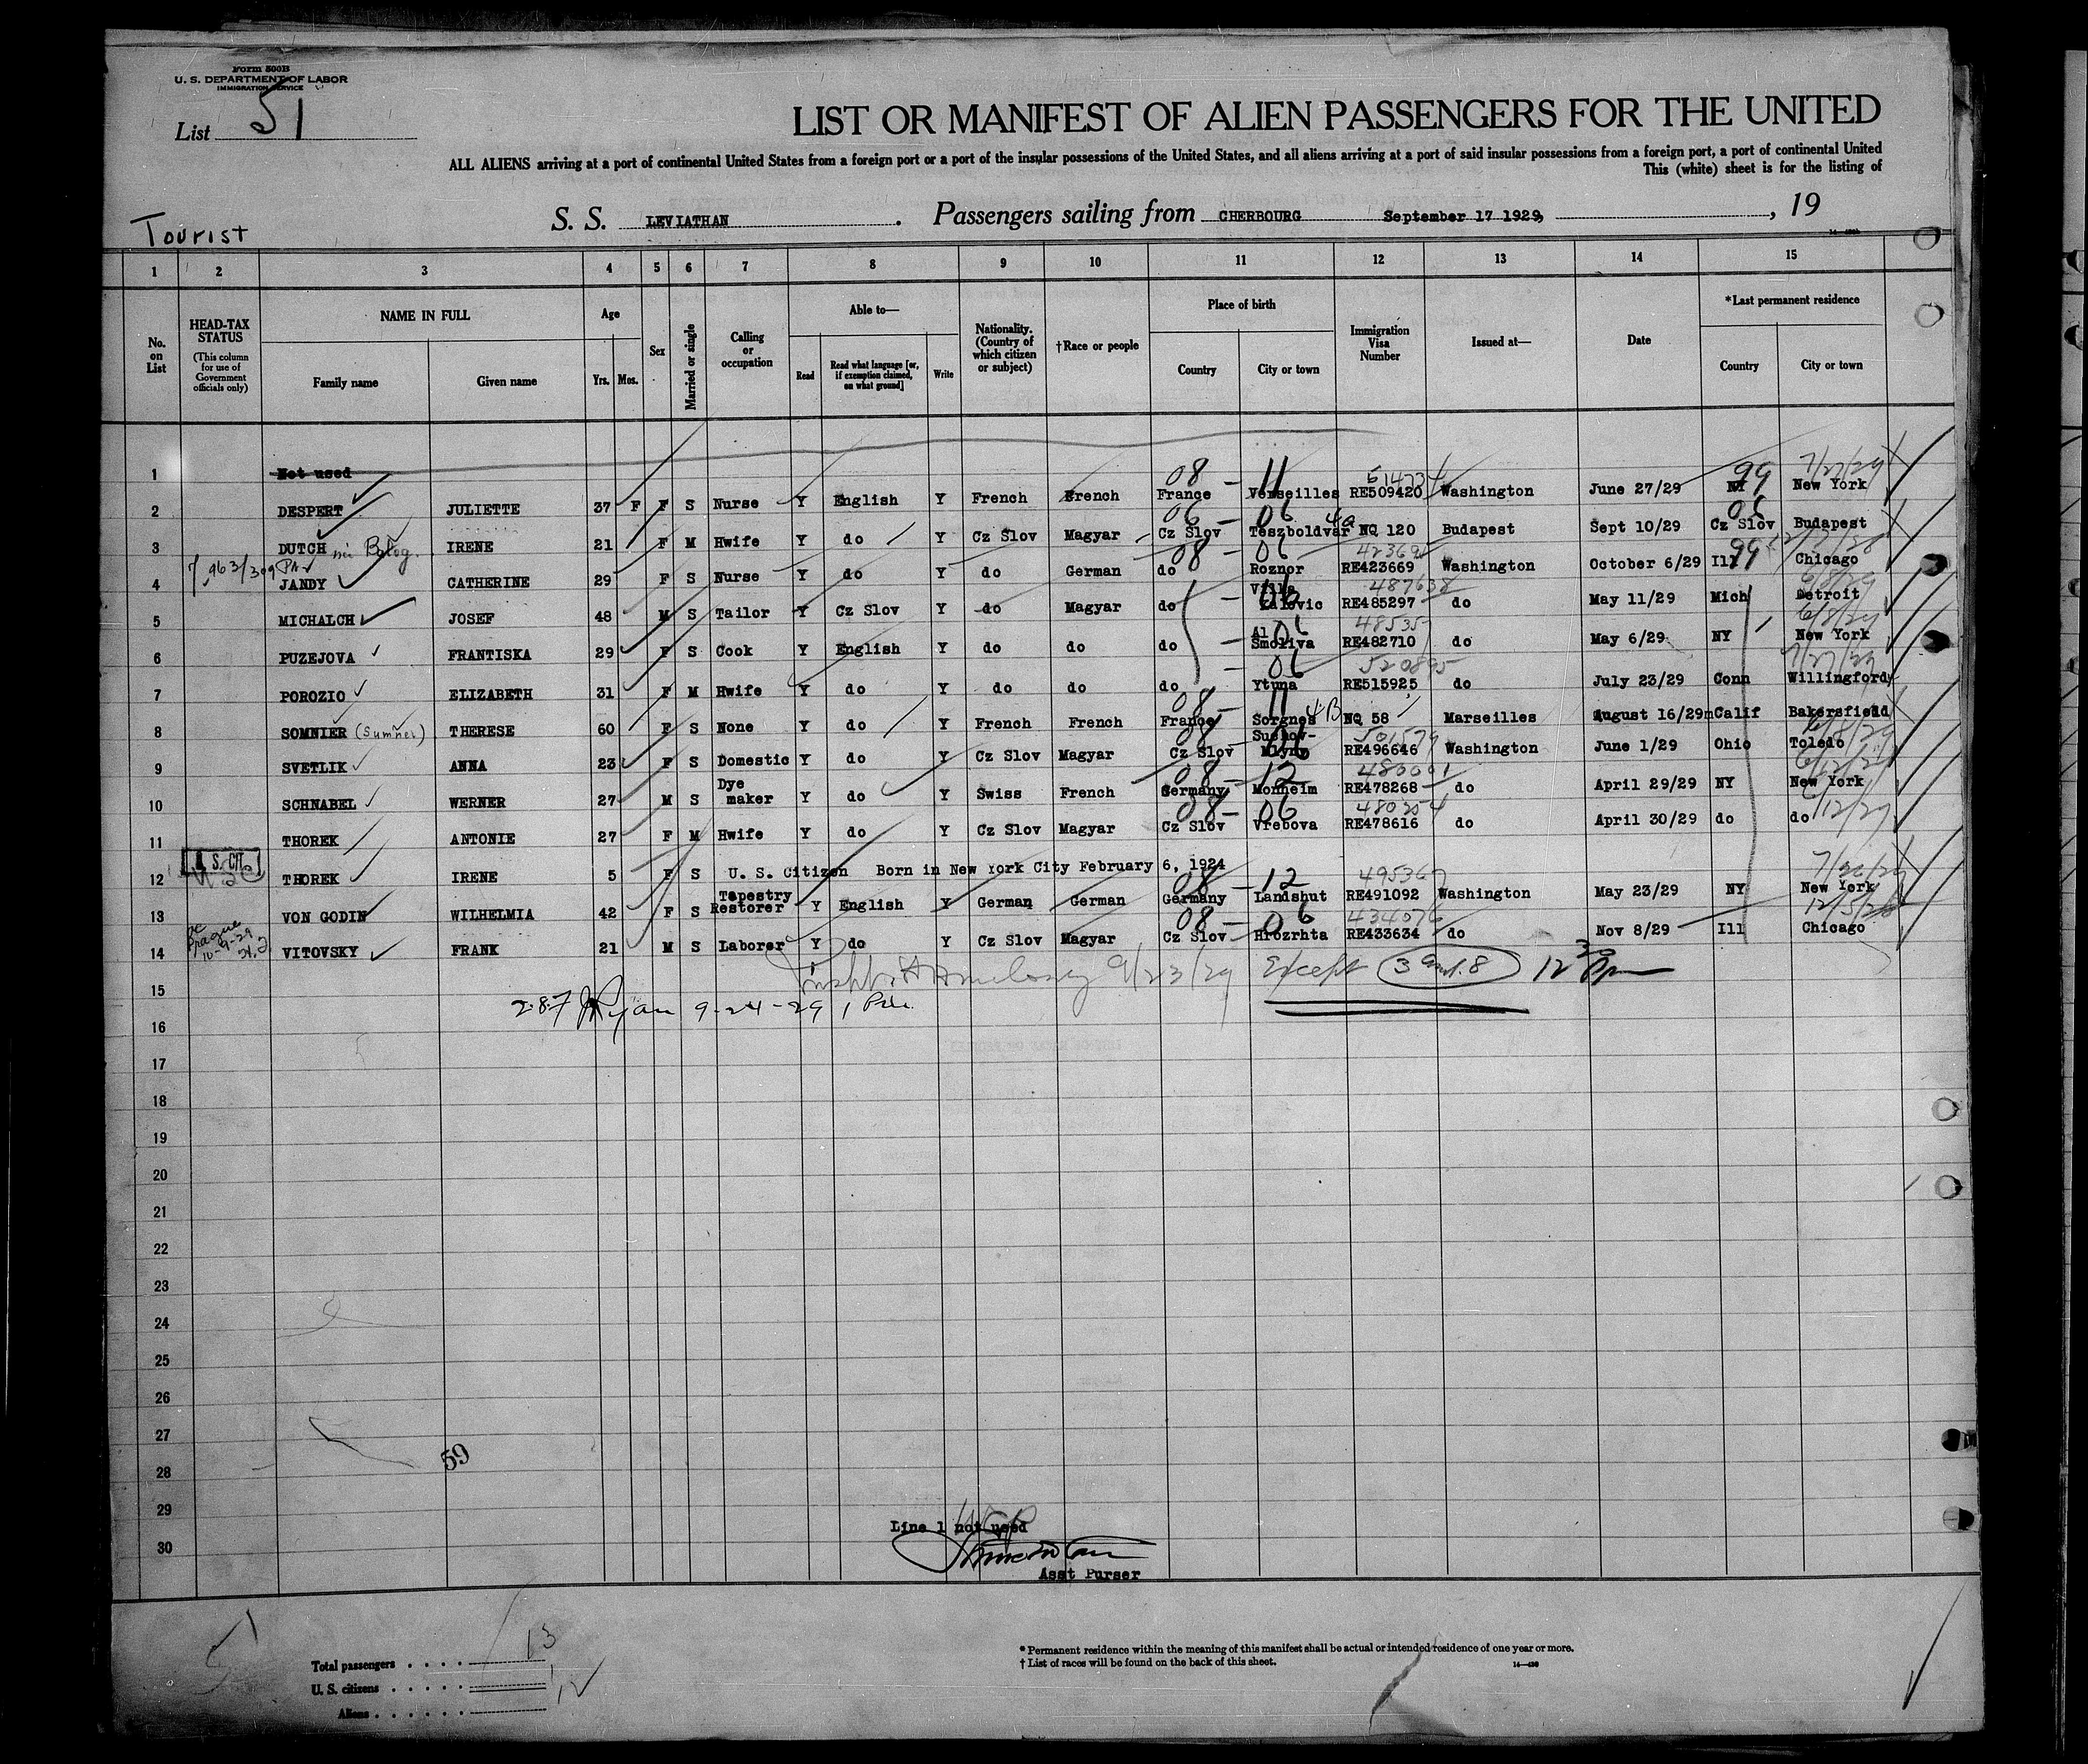 Form 500B
U. S. DEPARTMENT OF LABOR
IMMIGRATION SERVICE
List 51
LIST OR MANIFEST OF ALIEN PASSENGERS FOR THE UNITED
ALL ALIENS arriving at a port of continental United States from a foreign port or a port of the insular possessions of the United States, and all aliens arriving at a port of said insular possessions from a foreign port, a port of continental United
This (white) sheet is for the listing of
Tourist
S. S. LEVIATHAN. Passengers sailing from CHERBOURG September 17 1929, , 19
1 2 3 4 5 6 7 8 9 10 11 12 13 14 15
No. on List
HEAD-TAX STATUS (This column for use of Government officials only)
NAME IN FULL Family name Given name
Age Yrs. Mos.
Sex
Married or single
Calling or occupation
Able to— Read Read what language [or, if exemption claimed, on what ground] Write
Nationality. (Country of which citizen or subject)
†Race or people
Place of birth Country City or town
Immigration Visa Number
Issued at—
Date
*Last permanent residence Country City or town
1 Not used
08 - 11 99 7/27/29
2 DESPERT JULIETTE 37 F F S Nurse Y English Y French French France Verseilles RE509420 Washington June 27/29 NY New York
06 - 06 4a 06
3 DUTCH IRENE 21 F M Hwife Y do Y Cz Slov Magyar Cz Slov Teszboldvar NQ 120 Budapest Sept 10/29 Cz Slov Budapest
08 - 06 99
4 JANDY CATHERINE 29 F S Nurse Y do Y do German do Roznor RE423669 Washington October 6/29 Ill Chicago
487638 6/8/29
5 MICHALCH JOSEF 48 M S Tailor Y Cz Slov Y do Magyar do RE485297 do May 11/29 Mich Detroit
6/8/29
6 PUZEJOVA FRANTISKA 29 F S Cook Y English Y do do do Smoliva RE482710 do May 6/29 NY New York
06 520895 7/27/29
7 POROZIO ELIZABETH 31 F M Hwife Y do Y do do do Ytuna RE515925 do July 23/29 Conn Willingford
08 - 11 4B
8 SOMNIER (Sumner) THERESE 60 F S None Y do Y French French France Sorgnes NQ 58 Marseilles August 16/29 Calif Bakersfield
501579 6/8/29
9 SVETLIK ANNA 23 F S Domestic Y do Y Cz Slov Magyar Cz Slov RE496646 Washington June 1/29 Ohio Toledo
08 - 12 480001 6/12/29
10 SCHNABEL WERNER 27 M S Dye maker Y do Y Swiss French Germany Monheim RE478268 do April 29/29 NY New York
08 - 06 480254 6/12/29
11 THOREK ANTONIE 27 F M Hwife Y do Y Cz Slov Magyar Cz Slov Vrebova RE478616 do April 30/29 do do
U. S. CIT.
12 THOREK IRENE 5 F S U. S. Citizen Born in New York City February 6, 1924
08 - 12 7/26/29
13 VON GODIN WILHELMIA 42 F S Tapestry Restorer Y English Y German German Germany Landshut RE491092 Washington May 23/29 NY New York
Prague 10-9-29
08 - 06 434076 12/5/28
14 VITOVSKY FRANK 21 M S Laborer Y do Y Cz Slov Magyar Cz Slov Hrozrhta RE433634 do Nov 8/29 Ill Chicago
15 9/23/29 Except 3 and 8 12 30 pm
287 Ryan 9-24-29
16
17
18
19
20
21
22
23
24
25
26
27
59
28
29
Line 1 not used
30
Asst Purser
Total passengers 13
U. S. citizens 1
Aliens 12
* Permanent residence within the meaning of this manifest shall be actual or intended residence of one year or more.
† List of races will be found on the back of this sheet.